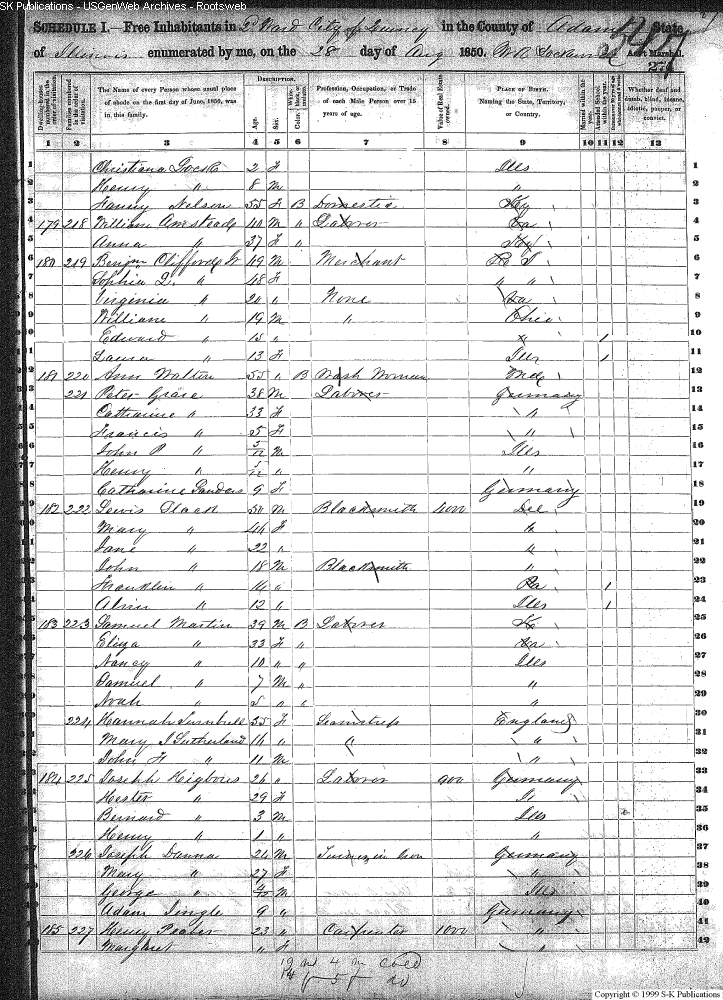 SK Publications - USGenWeb Archives - Rootsweb
SCHEDULE I.—Free Inhabitants in 2d Ward City of Quincy in the County of Adams State
of Illinois enumerated by me, on the 28 day of Aug 1850. Ass't Marshal.
Dwelling-houses numbered in the order of visitation.
Families numbered in the order of visitation.
The Name of every Person whose usual place of abode on the first day of June, 1850, was in this family.
DESCRIPTION.
Age.
Sex.
Color, White, black, or mulatto.
Profession, Occupation, or Trade of each Male Person over 15 years of age.
Value of Real Estate owned.
PLACE OF BIRTH. Naming the State, Territory, or Country.
Married within the year.
Attended School within the year.
Whether deaf and dumb, blind, insane, idiotic, pauper, or convict.
1 2 3 4 5 6 7 8 9 10 11 12 13
1 Christiana 2 F Ills 1
2 Henry " 8 M " 2
3 Fanny Nelson 55 F B Domestic Ky 3
4 179 218 William Armstead 40 M " Laborer Va 4
5 Anna " 37 F " Ky 5
6 180 219 Benjm Clifford Jr 49 M Merchant 6
7 Sophia L. " 48 F " " 7
8 Virginia " 20 " None Va 8
9 William " 19 M " Ohio 9
10 Edward " 15 " 1 10
11 Laura " 13 F Ills 1 11
12 181 220 Ann Walton 55 " B Wash Woman Md 12
13 221 Peter Grase 38 M Laborer Germany 13
14 Catharine " 33 F " 14
15 Francis " 5 F " 15
16 John P " 5/12 M Ills 16
17 Henry " 5/12 " " 17
18 Catharine Sanders 9 F Germany 18
19 182 222 Lewis 50 M Blacksmith 4000 Del 19
20 Mary " 44 F " 20
21 Jane " 22 " " 21
22 John " 18 M Blacksmith " 22
23 Franklin " 14 " Pa 1 23
24 " 12 " Ills 1 24
25 183 223 Samuel Martin 39 M B Laborer 25
26 Eliza " 33 F " Va 26
27 Nancy " 10 " " Ills 27
28 Samuel " 7 M " " 28
29 Noah " 5 " " " 29
30 224 Hannah Turnbull 55 F Seamstress England 30
31 Mary J Sutherland 14 " " " 31
32 John H " 11 M " 32
33 184 225 Joseph Higbous 26 " Laborer 900 Germany 33
34 Hester " 29 F 34
35 Bernard " 3 M Ills 35
36 Henry " 1 " " 36
37 226 Joseph Danna 24 M Germany 37
38 Mary " 27 F " 38
39 George " M Ills 39
40 Adam Single 9 " Germany 40
41 185 227 Henry 23 " Carpenter 1000 " 41
42 Margaret " F " 42
Copyright © 1999 S-K Publications